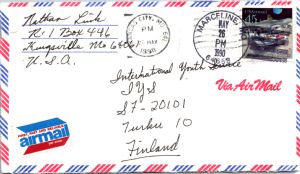 Nathan Link
R.1 Box 446
Kingsville Mo 64061
U.S.A.
CITY, MO
PM
1990
MARCELINE, MO
MAY
26
PM
1990
45
USAirmail
International Youth Service
IYS
SF-20101
Turku 10
Finland
Via Air Mail
airmail